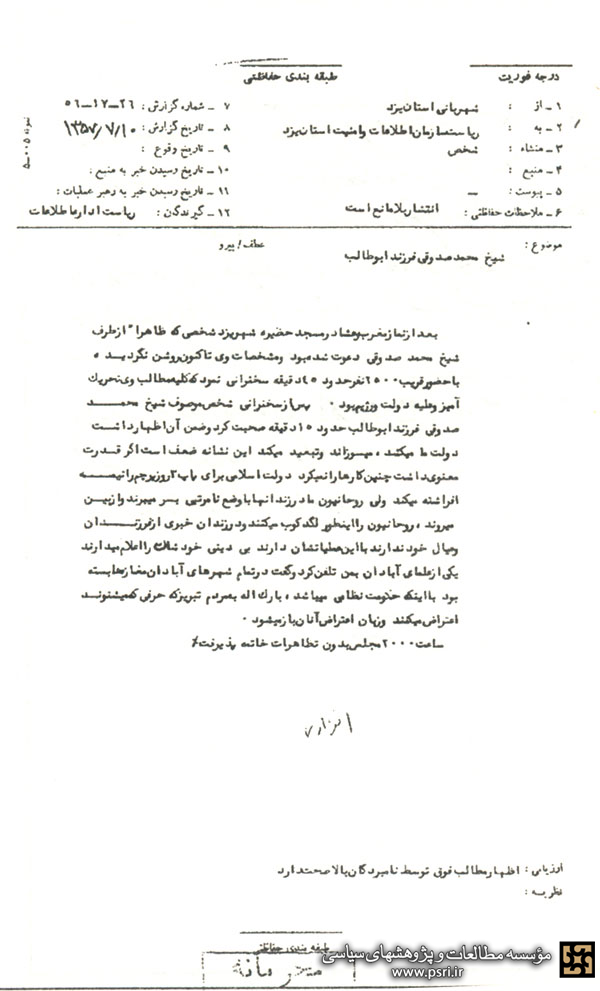 درجه فوریت
طبقه بندی حفاظتی
۱ ـ از : شهربانی استان یزد
۷ ـ شماره گزارش : ۲۶ـ۱۷ـ۵۶
۲ ـ به : ریاست سازمان اطلاعات وامنیت استان یزد
۸ ـ تاریخ گزارش : ۱۳۵۷/۷/۱۰
۳ ـ منشاء : شخص
۹ ـ تاریخ وقوع :
۴ ـ منبع :
۱۰ ـ تاریخ رسیدن خبر به منبع :
۵ ـ پیوست : ـ
۱۱ ـ تاریخ رسیدن خبر به رهبر عملیات :
۶ ـ ملاحظات حفاظتی : انتشار بلامانع است
۱۲ ـ گیرندگان : ریاست اداره اطلاعات
نمونه ۰۰۵ـ۵
موضوع : شیخ محمد صدوقی فرزند ابوطالب
عطف / پیرو
بعد از نماز مغرب وعشاء در مسجد حضیره شهر یزد شخصی که ظاهرا" از طرف
شیخ محمد صدوقی دعوت شده بود ومشخصات وی تاکنون روشن نگردیده
با حضور قریب ۲۵۰۰ نفر حدود ۴۵ دقیقه سخنرانی نمود که کلیه مطالب وی تحریک
آمیز وعلیه دولت ورژیم بود . پس از سخنرانی شخص موصوف شیخ محمد
صدوقی فرزند ابوطالب حدود ۱۵ دقیقه صحبت کرد وضمن آن اظهار داشت
دولت ما میکشد ، میسوزاند وتبعید میکند این نشانه ضعف است اگر قدرت
معنوی داشت چنین کارها را نمیکرد دولت اسلامی برای پاپ ۳ روز پرچم را نیمه
افراشته میکند ولی روحانیون ما در زندانها با وضع نامرتبی بسر میبرند وازبین
میروند ، روحانیون را اینطور لگدکوب میکنند ودر زندان خبری از فرزندان
وعیال خود ندارند با این عملیاتشان دارند بی دینی خودشان را اعلام میدارند
یکی از علمای آبادان بمن تلفن کرد وگفت در تمام شهرهای آبادان مغازه ها بسته
بود با اینکه حکومت نظامی میباشد ، بارک اله به مردم تبریز که حرفی که میشنوند
اعتراض میکنند وزبان اعتراض آنان باز میشود .
ساعت ۲۰۰۰ مجلس بدون تظاهرات خاتمه پذیرفت /
ارزیابی : اظهار مطالب فوق توسط نامبردگان بالا صحت دارد
نظریه :
طبقه بندی حفاظتی
محرمانه
مؤسسه مطالعات و پژوهشهای سیاسی
www.psri.ir